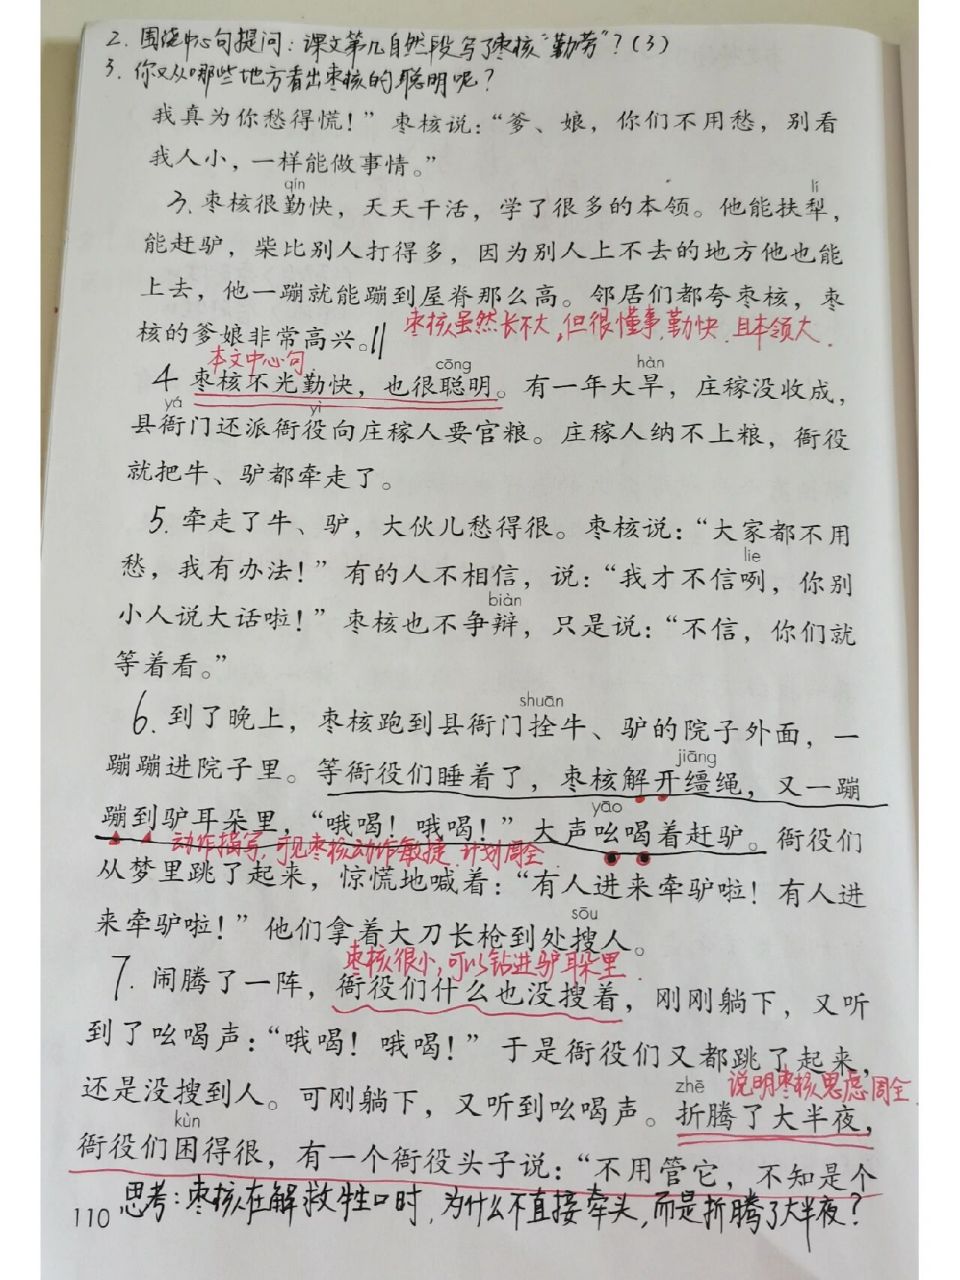 2. 围绕中心句提问：课文第几自然段写了枣核“勤劳”？(3)
3. 你又从哪些地方看出枣核的聪明呢？
我真为你愁得慌！”枣核说：“爹、娘，你们不用愁，别看
我人小，一样能做事情。”
qín lí
3. 枣核很勤快，天天干活，学了很多的本领。他能扶犁，
能赶驴，柴比别人打得多，因为别人上不去的地方他也能
上去，他一蹦就能蹦到屋脊那么高。邻居们都夸枣核，枣
核的爹娘非常高兴。||
枣核虽然长不大，但很懂事，勤快，且本领大.
本文中心句
cōng hàn
4 枣核不光勤快，也很聪明。有一年大旱，庄稼没收成，
yá yì
县衙门还派衙役向庄稼人要官粮。庄稼人纳不上粮，衙役
就把牛、驴都牵走了。
5. 牵走了牛、驴，大伙儿愁得很。枣核说：“大家都不用
愁，我有办法！”有的人不相信，说：“我才不信咧，你别
lie
小人说大话啦！”枣核也不争辩，只是说：“不信，你们就
biàn
等着看。”
shuān
6. 到了晚上，枣核跑到县衙门拴牛、驴的院子外面，一
蹦蹦进院子里。等衙役们睡着了，枣核解开缰绳，又一蹦
jiāng
蹦到驴耳朵里，“哦喝！哦喝！”大声吆喝着赶驴。衙役们
yāo
动作描写，可见枣核动作敏捷，计划周全.
从梦里跳了起来，惊慌地喊着：“有人进来牵驴啦！有人进
来牵驴啦！”他们拿着大刀长枪到处搜人。
sōu
枣核很小，可以钻进驴耳朵里.
7. 闹腾了一阵，衙役们什么也没搜着，刚刚躺下，又听
到了吆喝声：“哦喝！哦喝！”于是衙役们又都跳了起来，
还是没搜到人。可刚躺下，又听到吆喝声。折腾了大半夜，
zhē
说明枣核思虑周全.
kùn
衙役们困得很，有一个衙役头子说：“不用管它，不知是个
思考：枣核在解救牲口时，为什么不直接牵头，而是折腾了大半夜？
110